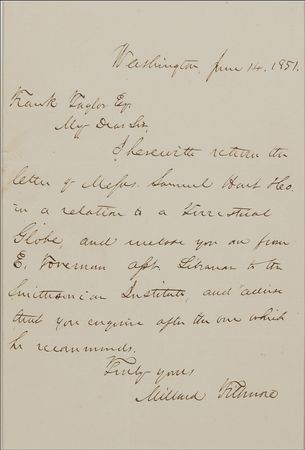 Washington, June 14. 1851.
Frank Taylor Esq.
My Dear Sir,
I herewith return the
letter of Messrs. Samuel Hart &co.
in a relation to a Terrestrial
Globe, and inclose you one from
E. Foreman asst Librarian to the
Smithsonian Institute, and advise
that you enquire after the one which
he recommends.
Truly yours
Millard Fillmore